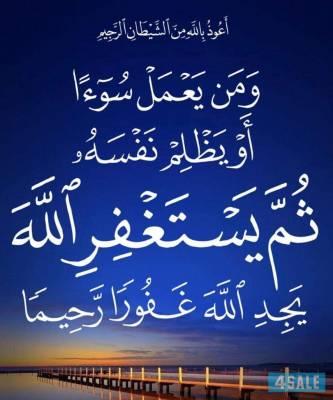 أَعُوذُ بِٱللَّهِ مِنَ ٱلشَّيْطَانِ ٱلرَّجِيمِ
وَمَن يَعْمَلْ سُوٓءًا
أَوْ يَظْلِمْ نَفْسَهُۥ
ثُمَّ يَسْتَغْفِرِ ٱللَّهَ
يَجِدِ ٱللَّهَ غَفُورًا رَّحِيمًا
4SALE